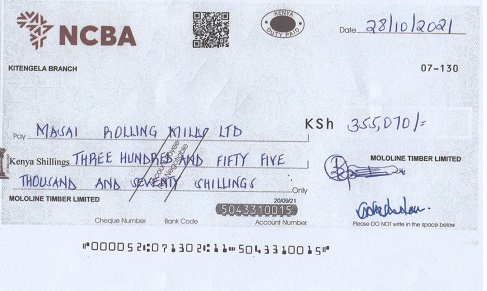 NCBA
KENYA
DUTY PAID
Date 28/10/2021
KITENGELA BRANCH
07-130
Pay MASAI ROLLING MILLS LTD
KSh 355,070/=
Kenya Shillings THREE HUNDRED AND FIFTY FIVE
THOUSAND AND SEVENTY SHILLINGS Only
MOLOLINE TIMBER LIMITED
MOLOLINE TIMBER LIMITED
20/09/21
5043310015
Cheque Number Bank Code Account Number
Please DO NOT write in the space below
"000052"071302"11"5043310015"